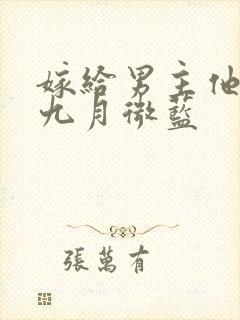 嫁給男主他
九月微藍
張萬有